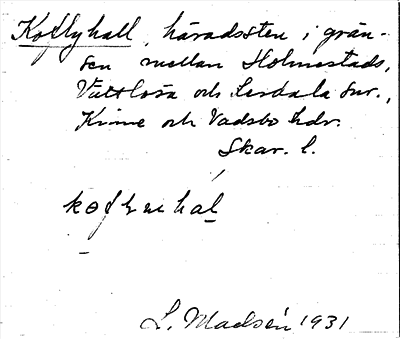 Koflyhall, häradssten i grän-
sen mellan Holmestads,
Vättlösa och Lerdala snr.,
Kinne och Vadsbo hdr.
Skar. l.
L. Madsén 1931